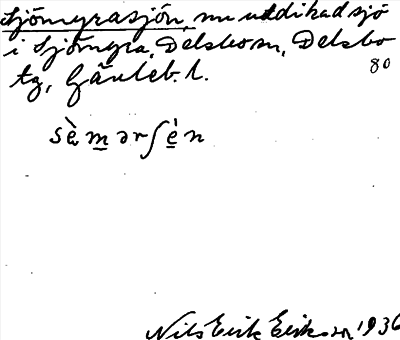 Sjömyrasjön, nu utdikad sjö
i Sjömyra, Delsbo sn, Delsbo
tg, Gävleb. l.
80
sè̀m̲ərʃè̲n
Nils Erik Eriksson 1936